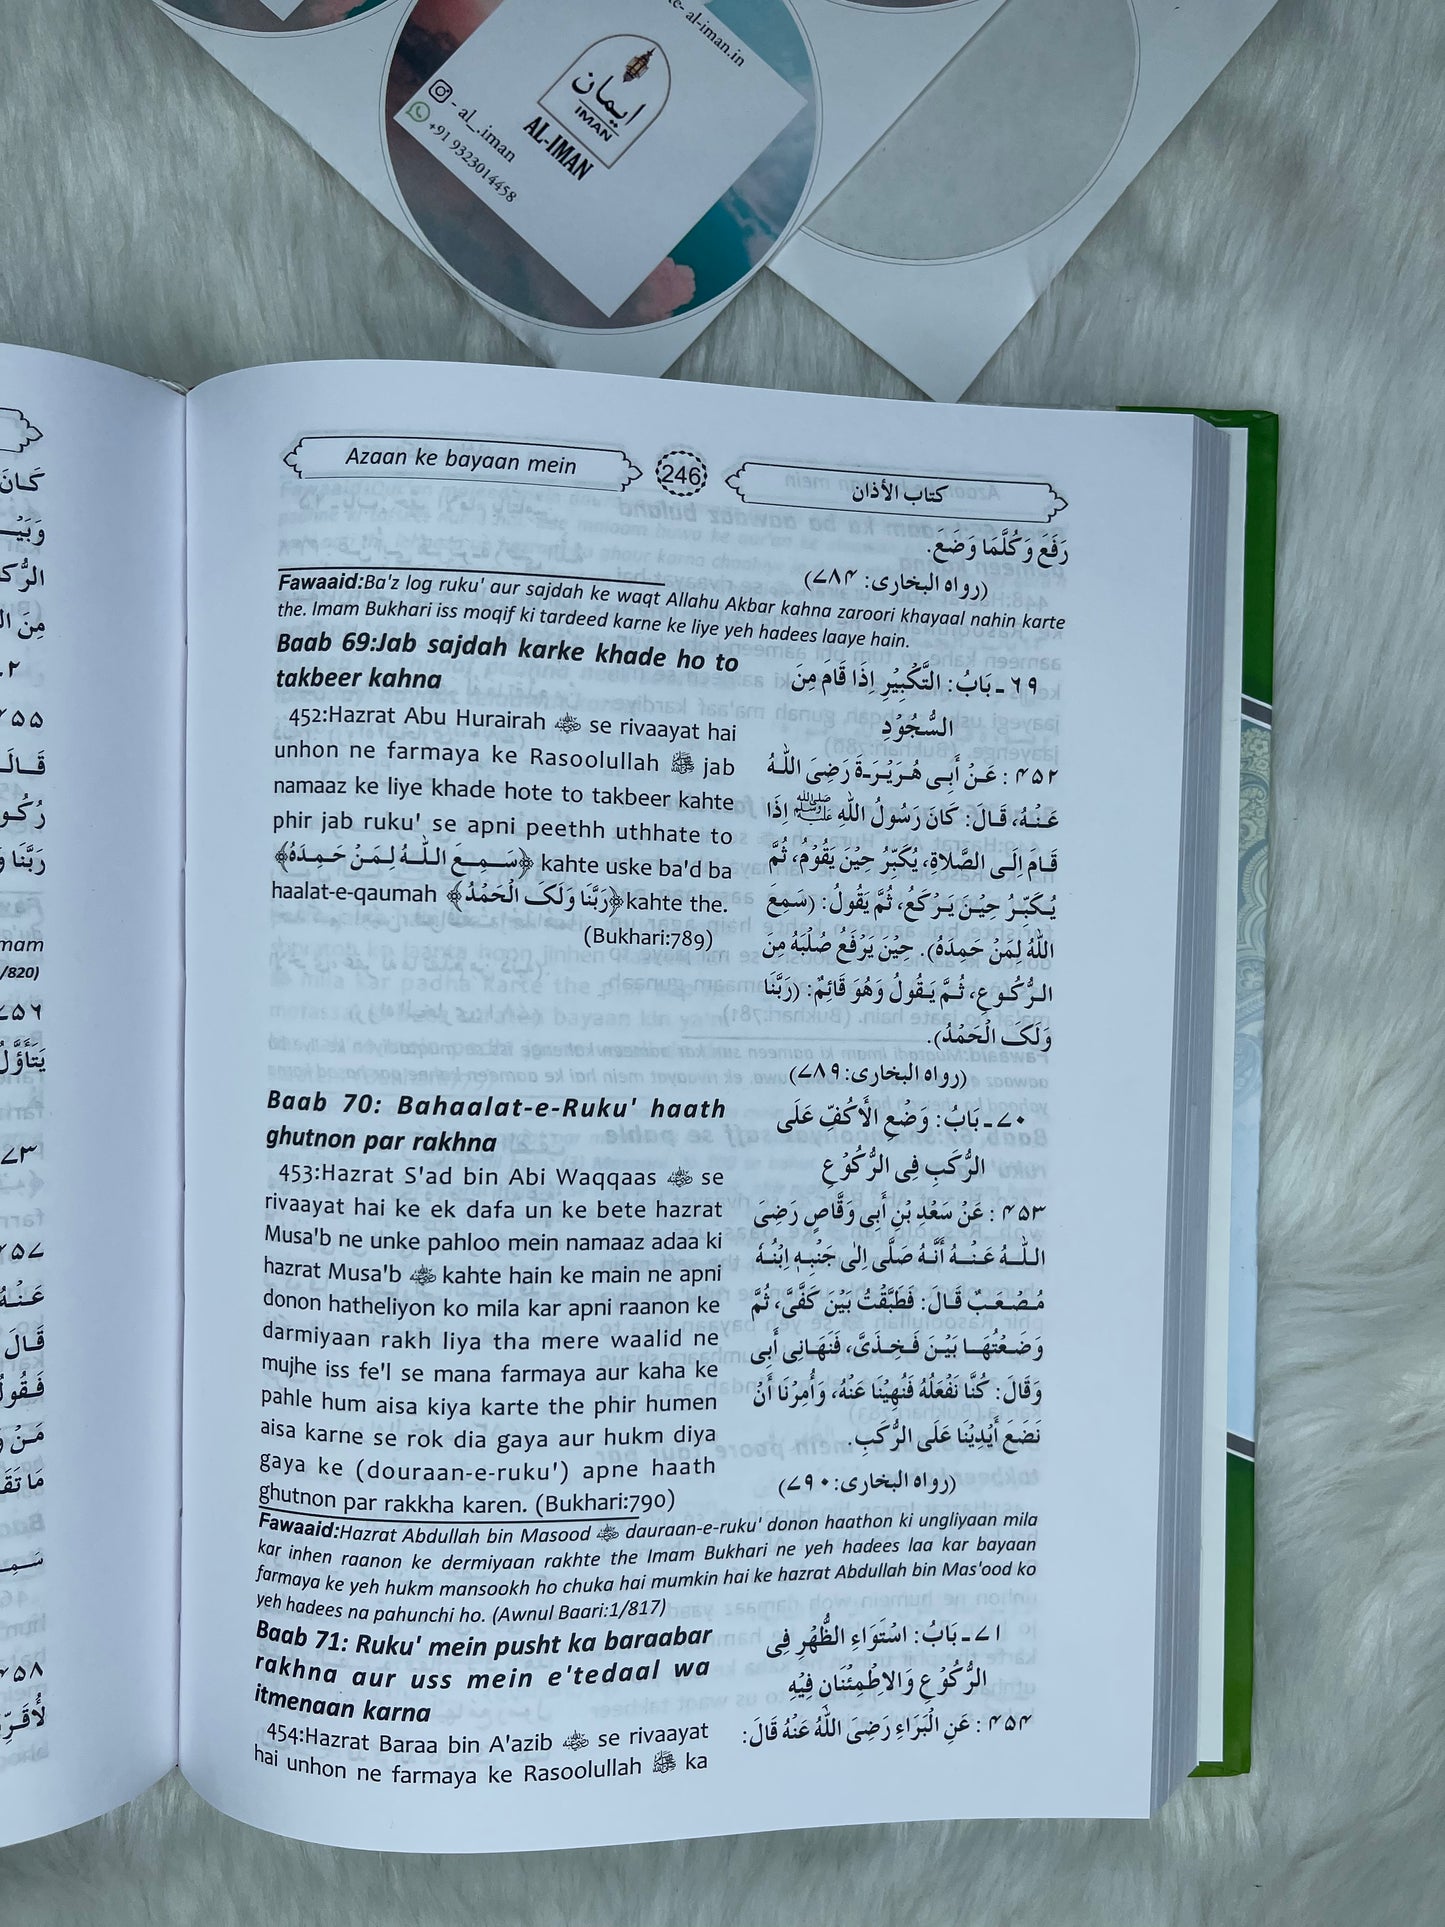 al-iman.in
ایمان
IMAN
AL-IMAN
- al_.iman
+91 9323014458
Azaan ke bayaan mein
246
كتاب الأذان
رَفَعَ وَكُلَّمَا وَضَعَ.
(رواه البخاری: ۷۸۴)
Fawaaid:Ba'z log ruku' aur sajdah ke waqt Allahu Akbar kahna zaroori khayaal nahin karte
the. Imam Bukhari iss moqif ki tardeed karne ke liye yeh hadees laaye hain.
Baab 69:Jab sajdah karke khade ho to
takbeer kahna
452:Hazrat Abu Hurairah ؓ se rivaayat hai
unhon ne farmaya ke Rasoolullah ﷺ jab
namaaz ke liye khade hote to takbeer kahte
phir jab ruku' se apni peethh uthhate to
﴿سَمِعَ اللهُ لِمَنْ حَمِدَهُ﴾ kahte uske ba'd ba
haalat-e-qaumah ﴿رَبَّنَا وَلَکَ الْحَمْدُ﴾ kahte the.
(Bukhari:789)
۶۹ ـ بَابُ: التَّكْبِيْرِ اِذَا قَامَ مِنَ
السُّجُوْدِ
۴۵۲ : عَنْ أَبِی هُرَيْرَةَ رَضِیَ اللهُ
عَنْهُ، قَالَ: كَانَ رَسُوْلُ اللهِ ﷺ اِذَا
قَامَ اِلَی الصَّلَاةِ، يُكَبِّرُ حِيْنَ يَقُوْمُ، ثُمَّ
يُكَبِّرُ حِيْنَ يَرْكَعُ، ثُمَّ يَقُوْلُ: (سَمِعَ
اللهُ لِمَنْ حَمِدَهُ). حِيْنَ يَرْفَعُ صُلْبَهُ مِنَ
الرُّكُوعِ، ثُمَّ يَقُولُ وَهُوَ قَائِمٌ: (رَبَّنَا
وَلَکَ الْحَمْدُ).
(رواه البخاری: ۷۸۹)
Baab 70: Bahaalat-e-Ruku' haath
ghutnon par rakhna
453:Hazrat S'ad bin Abi Waqqaas ؓ se
rivaayat hai ke ek dafa un ke bete hazrat
Musa'b ne unke pahloo mein namaaz adaa ki
hazrat Musa'b ؓ kahte hain ke main ne apni
donon hatheliyon ko mila kar apni raanon ke
darmiyaan rakh liya tha mere waalid ne
mujhe iss fe'l se mana farmaya aur kaha ke
pahle hum aisa kiya karte the phir humen
aisa karne se rok dia gaya aur hukm diya
gaya ke (douraan-e-ruku') apne haath
ghutnon par rakkha karen. (Bukhari:790)
۷۰ ـ بَابُ: وَضْعِ الْاَكُفِّ عَلَی
الرُّكَبِ فِی الرُّكُوْعِ
۴۵۳ : عَنْ سَعْدِ بْنِ أَبِی وَقَّاصٍ رَضِیَ
اللهُ عَنْهُ أَنَّهُ صَلَّی اِلٰی جَنْبِهٖ اِبْنُهٗ
مُصْعَبٌ قَالَ: فَطَبَّقْتُ بَيْنَ كَفَّیَّ، ثُمَّ
وَضَعْتُهَا بَيْنَ فَخِذَیَّ، فَنَهَانِی أَبِی
وَقَالَ: كُنَّا نَفْعَلُهُ فَنُهِيْنَا عَنْهُ، وَأُمِرْنَا أَنْ
نَضَعَ أَيْدِيْنَا عَلَی الرُّكَبِ.
(رواه البخاری: ۷۹۰)
Fawaaid:Hazrat Abdullah bin Masood ؓ dauraan-e-ruku' donon haathon ki ungliyaan mila
kar inhen raanon ke dermiyaan rakhte the Imam Bukhari ne yeh hadees laa kar bayaan
farmaya ke yeh hukm mansookh ho chuka hai mumkin hai ke hazrat Abdullah bin Mas'ood ko
yeh hadees na pahunchi ho. (Awnul Baari:1/817)
Baab 71: Ruku' mein pusht ka baraabar
rakhna aur uss mein e'tedaal wa
itmenaan karna
454:Hazrat Baraa bin A'azib ؓ se rivaayat
hai unhon ne farmaya ke Rasoolullah ﷺ ka
۷۱ ـ بَابُ: اسْتَوَاءِ الظَّهْرِ فِی
الرُّكُوْعِ وَالِاطْمِئْنَانِ فِيْهِ
۴۵۴ : عَنِ الْبَرَاءِ رَضِیَ اللهُ عَنْهُ قَالَ: